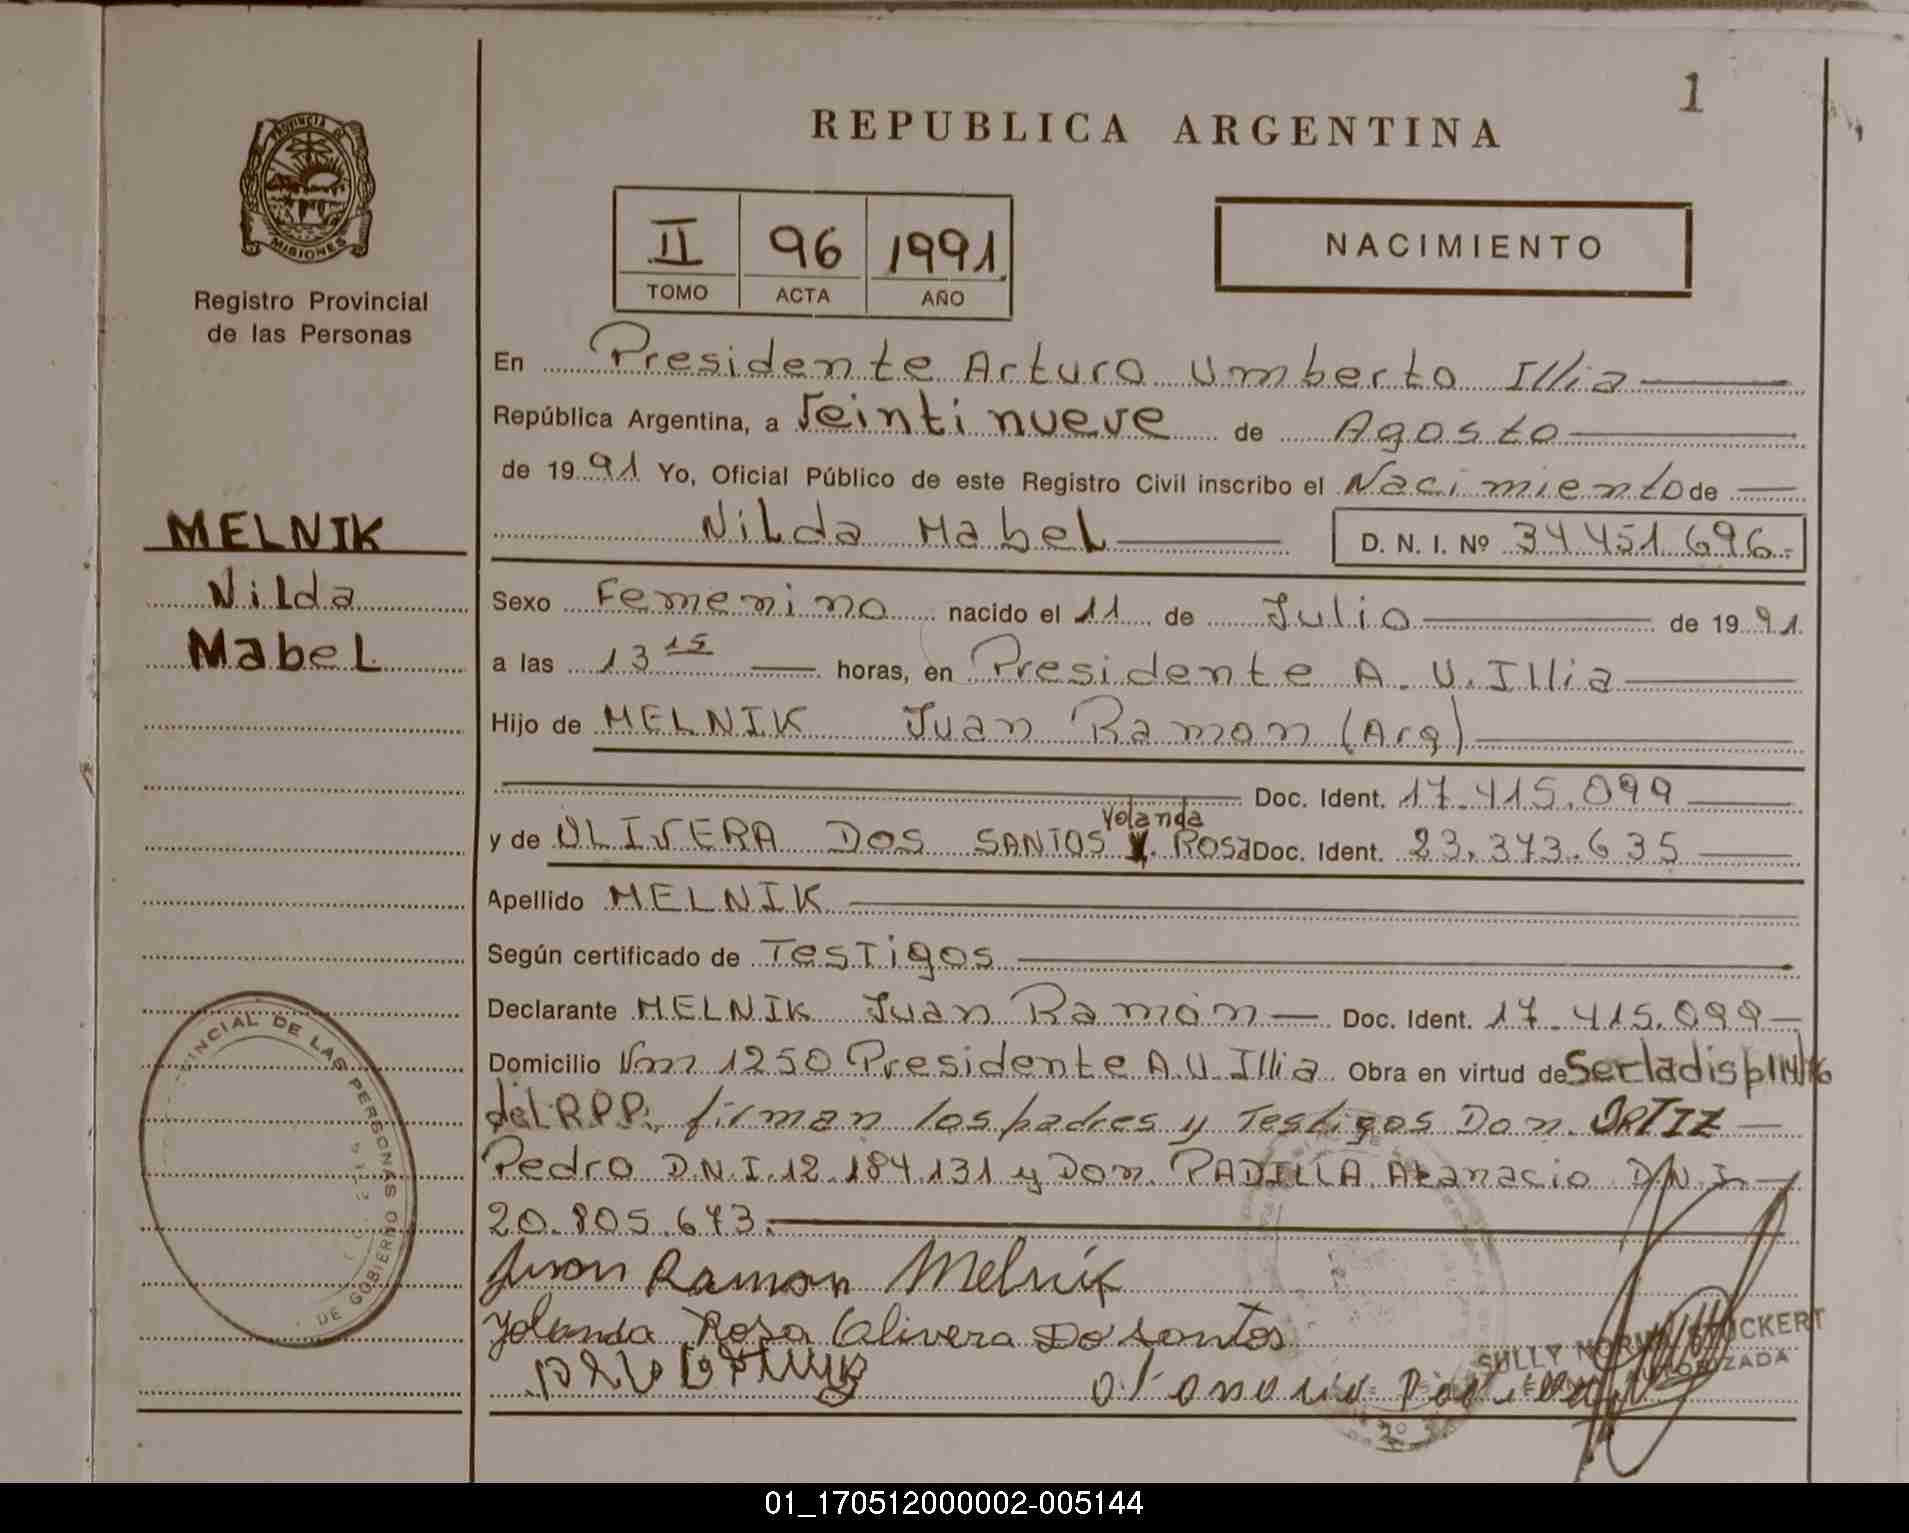 1
REPUBLICA ARGENTINA
PROVINCIA DE
MISIONES
Registro Provincial
de las Personas
II 96 1991
TOMO ACTA AÑO
NACIMIENTO
MELNIK
Nilda
Mabel
En Presidente Arturo Umberto Illia
República Argentina, a Veintinueve de Agosto
de 1991 Yo, Oficial Público de este Registro Civil inscribo el Nacimiento de
Nilda Mabel D. N. I. Nº 34.451.696.-
Sexo Femenino nacido el 11 de Julio de 1991.
a las 13 15 horas, en Presidente A. U. Illia
Hijo de MELNIK Juan Ramon (Arg)
Doc. Ident. 17.415.099
Yolanda
y de OLIVERA DOS SANTOS Y. Rosa Doc. Ident. 23.373.635
Apellido MELNIK
Según certificado de Testigos
Declarante MELNIK Juan Ramón Doc. Ident. 17.415.099
Domicilio Km 1250 Presidente A. U. Illia Obra en virtud de
del R.P.P. firman los padres y Testigos Don ORTIZ
Pedro D.N.I. 12.184.131 y Don PADILLA Atanacio D.N.I.
20.805.673.
Juan Ramon Melnik
Yolanda Rosa Olivera Do santos
SULLY NORMA STUCKERT
AUTORIZADA
DE LAS PERSONAS
DE GOBIERNO
01_170512000002-005144